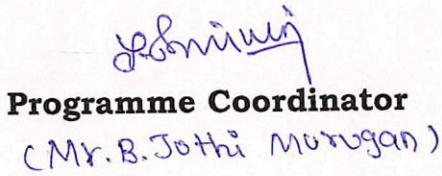 Programme Coordinator
(Mr. B. Jothi Murugan)